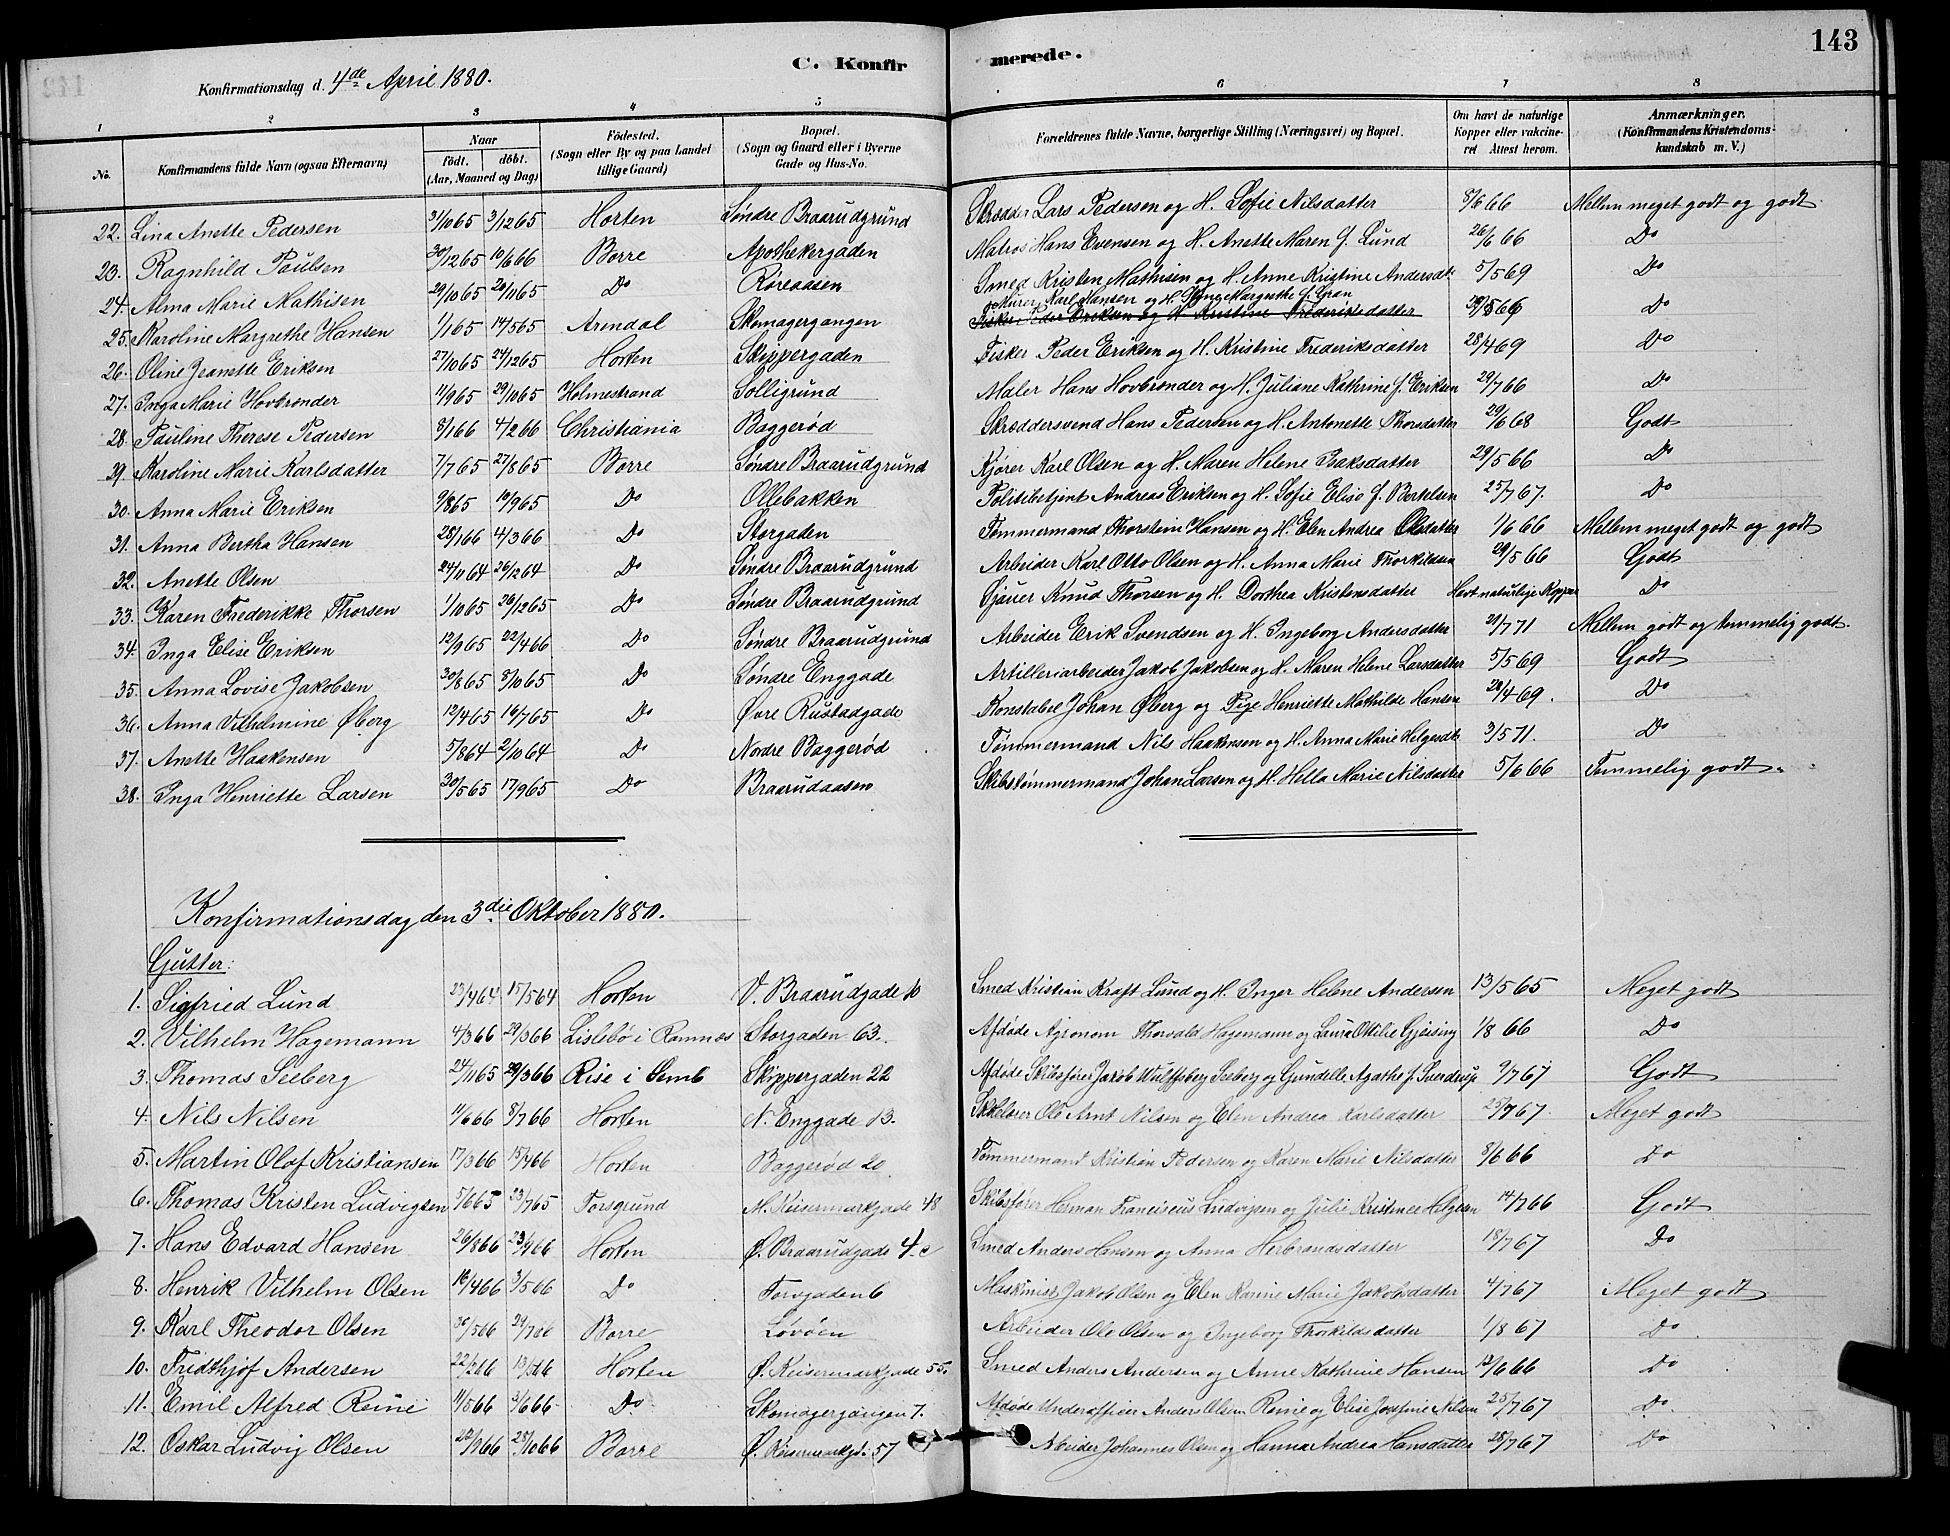 143
C. Konfirmerede.
Konfirmationsdag d. 4de April 1880.
1 2 3 4 5 6 7 8
No. Konfirmandens fulde Navn (ogsaa Efternavn) Naar født. døbt. (Aar, Maaned og Dag) Fødested. (Sogn eller By og paa Landet tillige Gaard) Bopæl. (Sogn og Gaard eller i Byerne Gade og Hus-No. Forældrenes fulde Navne, borgerlige Stilling (Næringsvei) og Bopæl. Om havt de naturlige Kopper eller vakcineret Attest herom. Anmærkninger. (Konfirmandens Kristendomskundskab m. V.)
22. Lina Anette Pedersen 31/10 65 3/12 65 Horten Søndre Braarudgrund Skrædder Lars Pedersen og H. Sofie Nilsdatter 8/6 66 Mellem meget godt og godt
23. Ragnhild Paulsen 30/12 65 10/6 66 Borre Apothekergaden Matros Hans Evensen og H. Anette Maren f. Lund 26/6 66 Do
24. Alma Marie Mathisen 29/10 65 20/11 65 Do Røreaasen Smed Kristen Mathisen og H. Anne Kristine Andersdt 5/5 69 Do
Murer Karl Hansen og H. Margrethe f. Gran
25. Karoline Margrethe Hansen 1/1 65 14/5 65 Arendal Skomagergangen Fisker Peder Eriksen og H. Kristine Frederiksdatter 29/5 66 Do
26. Oline Jeanette Eriksen 27/10 65 24/12 65 Horten Skippergaden Fisker Peder Eriksen og H. Kristine Frederiksdatter 28/4 69 Do
27. Inga Marie Hovbrender 11/9 65 29/10 65 Holmestrand Solligrund Maler Hans Hovbrender og H. Juliane Kathrine f. Eriksen 29/7 66 Do
28. Pauline Therese Pedersen 8/1 66 4/2 66 Christiania Baggerød Skræddersvend Hans Pedersen og H. Antonette Thorsdatter 29/6 68 Godt
29. Karoline Marie Karlsdatter 7/7 65 27/8 65 Borre Søndre Braarudgrund Kjører Karl Olsen og H. Maren Helene Isaksdatter 29/5 66 Do
30. Anna Marie Eriksen 9/8 65 10/9 65 Do Ollebakken Politibetjent Andreas Eriksen og H. Sofie Elise f. Bertelsen 25/7 67. Do
31. Anna Bertha Hansen 28/1 66 4/3 66 Do Storgaden Tømmermand Thorstein Hansen og H. Elen Andrea Olsdatter 1/6 66 Mellem meget godt og godt
32. Anette Olsen 24/11 64 26/12 64 Do Søndre Braarudgrund Arbeider Karl Otto Olsen og H. Anna Marie Thorkildsen 29/5 66 Godt
33. Karen Frederikke Thorsen 1/10 65 26/12 65 Do Søndre Braarudgrund Knud Thorsen og H. Dorthea Kristensdatter Havt naturlige Kopper Do
34. Inga Elise Eriksen 12/9 65 22/4 66 Do Søndre Braarudgrund Arbeider Erik Svendsen og H. Ingeborg Andersdatter 29/7 71 Mellem godt og temmelig godt.
35. Anna Lovise Jakobsen 30/8 65 8/10 65 Do Søndre Enggade Artilleriarbeider Jakob Jakobsen og H. Maren Helene Larsdatter 5/5 69 Godt
36. Anna Vilhelmine Øberg 12/4 65 16/7 65 Do Øvre Rustadgade Konstabel Johan Øberg og Pige Henriette Mathilde Hansen 28/4 69. Do
37. Anette Haakensen 5/8 64 2/10 64 Do Nordre Baggerød Tømmermand Nils Haakensen og H. Anna Marie Helgesdt. 3/5 71. Do
38. Inga Henriette Larsen 30/5 65 17/9 65 Do Braarudaasen Skibstømmermand Johan Larsen og H. Hella Marie Nilsdatter 5/6 66 Temmelig godt
Konfirmationsdag den 3die Oktober 1880.
Gutter:
1. Sigfried Lund 23/4 64 15/5 64 Horten V. Braarudgade 10 Smed Kristian Kraft Lund og H. Inger Helene Andersen 13/5 65 Meget godt
2. Vilhelm Hagemann 4/3 66 29/3 66 Lislebø i Ramnæs Storgaden 63. Afdøde Agronom Thorvald Hagemann og Laura Ottilie Gjøising 1/8 66 Do
3. Thomas Seeberg 24/11 65 29/3 66 Rise i Semb Skippergaden 22 Afdøde Skibsfører Jakob Wulffsberg Seeberg og Gundelle Agathe f. Sverdrup 9/7 67 Godt
4. Nils Nilsen 11/6 66 8/7 66 Horten N. Enggade 13. Ole Arnt Nilsen og Elen Andrea Karlsdatter 25/7 67. Meget godt
5. Martin Olaf Kristiansen 17/3 66 15/4 66 Horten Baggerød 20 Tømmermand Kristian Pedersen og Karen Marie Nilsdatter 8/6 66 Do
6. Thomas Kristen Ludvigsen 5/6 65 23/7 65 Porsgrund M. Keisermarkgade 48 Skibsfører Herman Franciscus Ludvigsen og Julie Kristince Helgesen 14/7 66 Godt
7. Hans Edvard Hansen 26/8 66 23/9 66 Horten Ø. Braarudgade 4. c Smed Anders Hansen og Anna Herbrandsdatter 18/7 67 Do
8. Henrik Vilhelm Olsen 16/4 66 3/5 66 Do Torvgaden 6 Maskinist Jakob Olsen og Elen Karine Marie Jakobsdatter 4/7 67 Meget godt
9. Karl Theodor Olsen 30/5 66 29/7 66 Borre Løvøen Arbeider Ole Olsen og Ingeborg Thorkildsdatter 1/8 67 Do
10. Fridthjof Andersen 22/2 66 13/5 66 Horten Ø. Keisermarkgade 55. Smed Anders Andersen og Anne Kathrine Hansen 12/6 66 Do
11. Emil Alfred Reinie 11/5 66 3/6 66 Do Skomagergangen 7. Afdøde Underofficer Anders Olsen Reinie og Elise Josefine Nilsen 25/7 67 Do
12. Oskar Ludvig Olsen 22/9 66 28/10 66 Borre Ø. Keisermarkgd. 57 Arbeider Johannes Olsen og Hanna Andrea Hansdatter 28/7 67 Do